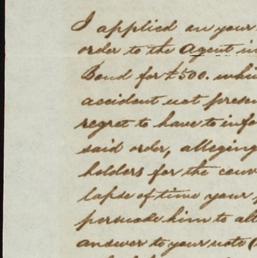 I applied on your
order to the Agent in
Bond for £500. whi
accident not presen
regret to have to info
said order, alleging
holders for the cour
lapse of time your
persuade him to alt
answer to your note (